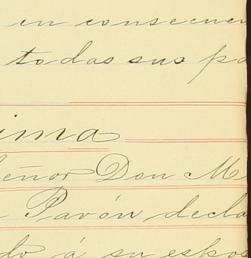 en consecuen
todas sus pa
ima
eñor Don M
Pavón decla
do á su espos